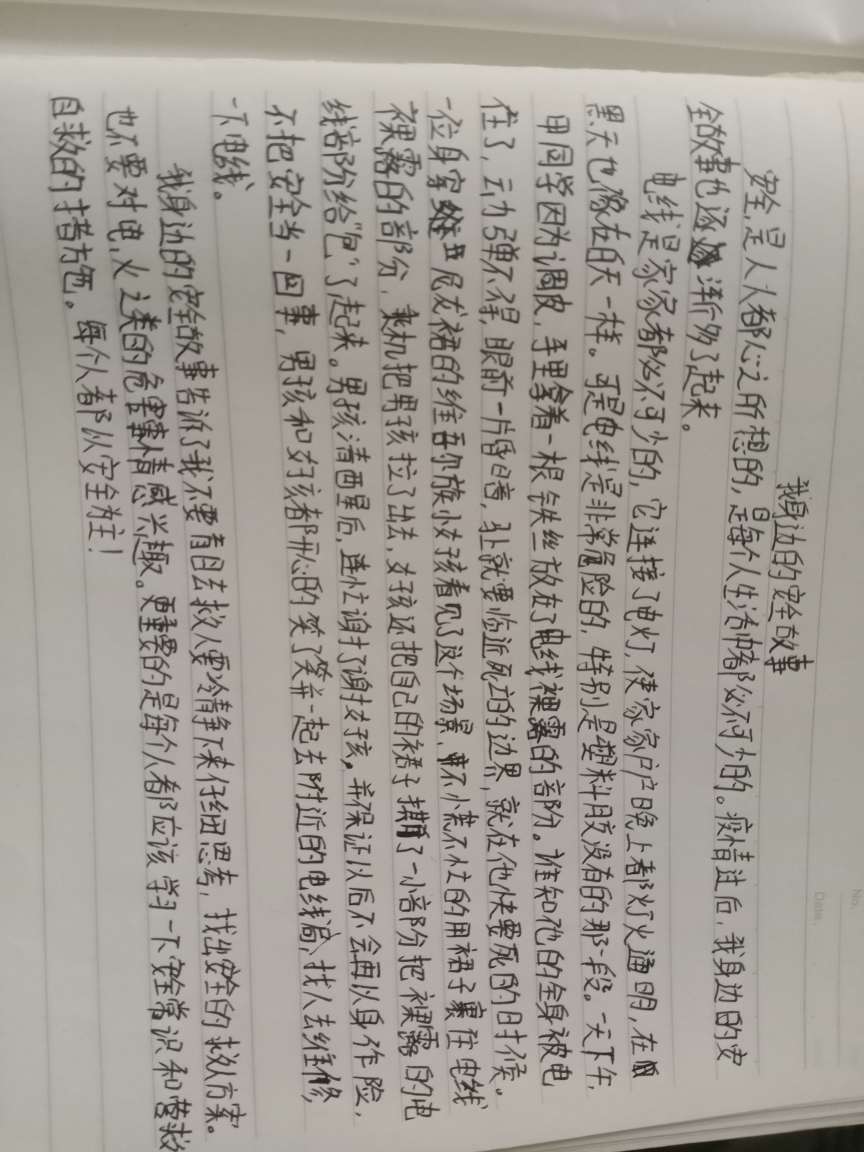 No.
Date.
我身边的安全故事
安全,是人人都心之所想的,是每个人生活中都必不可少的。疫情过后,我身边的安
全故事也逐渐多了起来。
电线是家家都必不可少的,它连接了电灯,使家家户户晚上都灯火通明,在
黑天也像在白天一样。可是电线是非常危险的,特别是塑料胶没有的那一段。一天下午,
甲同学因为调皮,手里拿着一根铁丝放在了电线裸露的部分。谁知他的全身被电
住了,动弹不得,眼前一片昏暗,马上就要临近死亡的边界,就在他快要死的时候。
一位身穿尼龙裙的维吾尔族小女孩看见了这个场景,不小荒不忙的用裙子裹住电线
裸露的部分,乘机把男孩拉了出去,女孩还把自己的裙子撕了一小部分把裸露的电
线部份给“包”了起来。男孩清醒后,连忙谢了谢女孩。并保证以后不会再以身作险,
不把安全当一回事,男孩和女孩都开心的笑了笑并一起去附近的电线局,找人去维修,
一下电线。
我身边的安全故事告诉了我不要盲目去救人要冷静下来仔细思考,找出安全的救人方案。
也不要对电,火之类的危害事情感兴趣。更重要的是每个人都应该学习一下安全常识和营救
自救的措施。每个人都以安全为主!